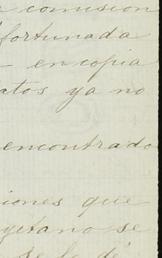 comision
fortunada
en copia
atos ya no
encontrado
iones que
yetano se
se le dé